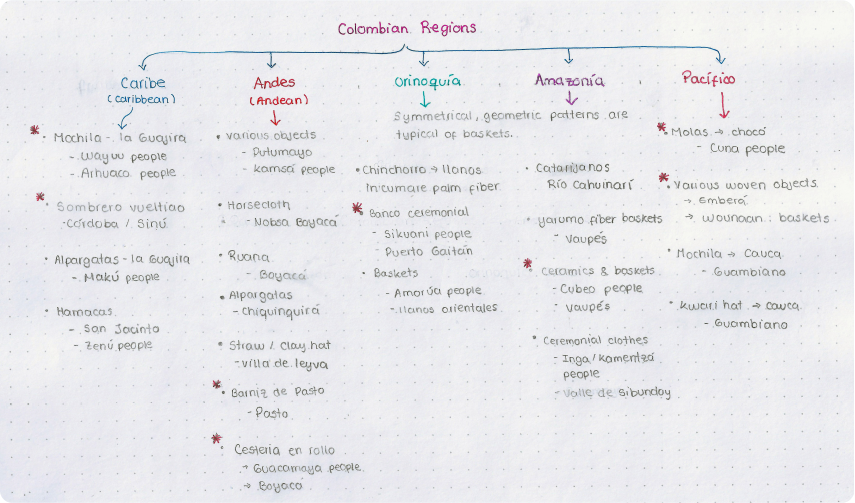 Colombian Regions
Caribe
(caribbean)
* • Mochila - la Guajira
- Wayuu people
- Arhuaco people
* • Sombrero vueltiao
- Córdoba / Sinú
• Alpargatas - la Guajira
- Makú people
• Hamacas
- San Jacinto
- Zenú people
Andes
(Andean)
• various objects
- Putumayo
- Kamsá people
• Horsecloth
- Nobsa Boyacá
• Ruana
- Boyacá
• Alpargatas
- Chiquinquirá
• Straw / clay hat
- villa de leyva
* • Barniz de Pasto
- Pasto
* • Cestería en rollo
→ Guacamaya people
→ Boyacá
Orinoquía
Amazonía
Symmetrical, geometric patterns are
typical of baskets.
• Chinchorro → llanos
Incumare palm fiber
* • Banco ceremonial
- Sikuani people
Puerto Gaitán
• Baskets
- Amorúa people
- llanos orientales
• Catarijanos
Río Cahuinarí
• yarumo fiber baskets
- Vaupés
* • Ceramics & baskets
- Cubeo people
- Vaupés
• Ceremonial clothes
- Inga / Kamentzá
people
- Valle de Sibundoy
Pacífico
* • Molas → chocó
- Cuna people
* • Various woven objects
→ Emberá
→ Wounaan : baskets
• Mochila → Cauca
- Guambiano
• kwari hat → cauca
- Guambiano